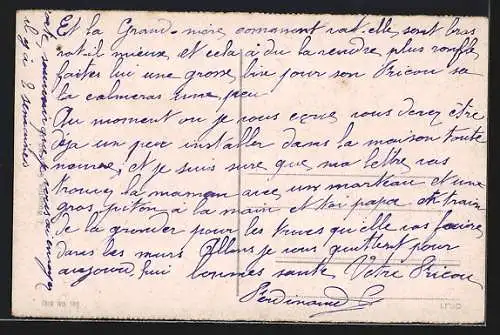 Et la Grand-mère comment vat-elle, sont bras
vat il mieux et cela à du la rendre plus ronfle
faites lui une grosse bise pour son Fricou sa
la calmeras une peu
Au moment ou je vous ecris vous devez être
déja un peu installer dans la maison toute
et je suis sure que ma lettre vas
trouvez la maman avec un marteau et une
gros piton à la main et toi papa en train
de la gronder pour les traces qu'elle vas faire
dans les murs Allons je vous quittent pour
aujourd'hui bonnes santé Votre Fricou
Ferdinand
il y à 2 semaines